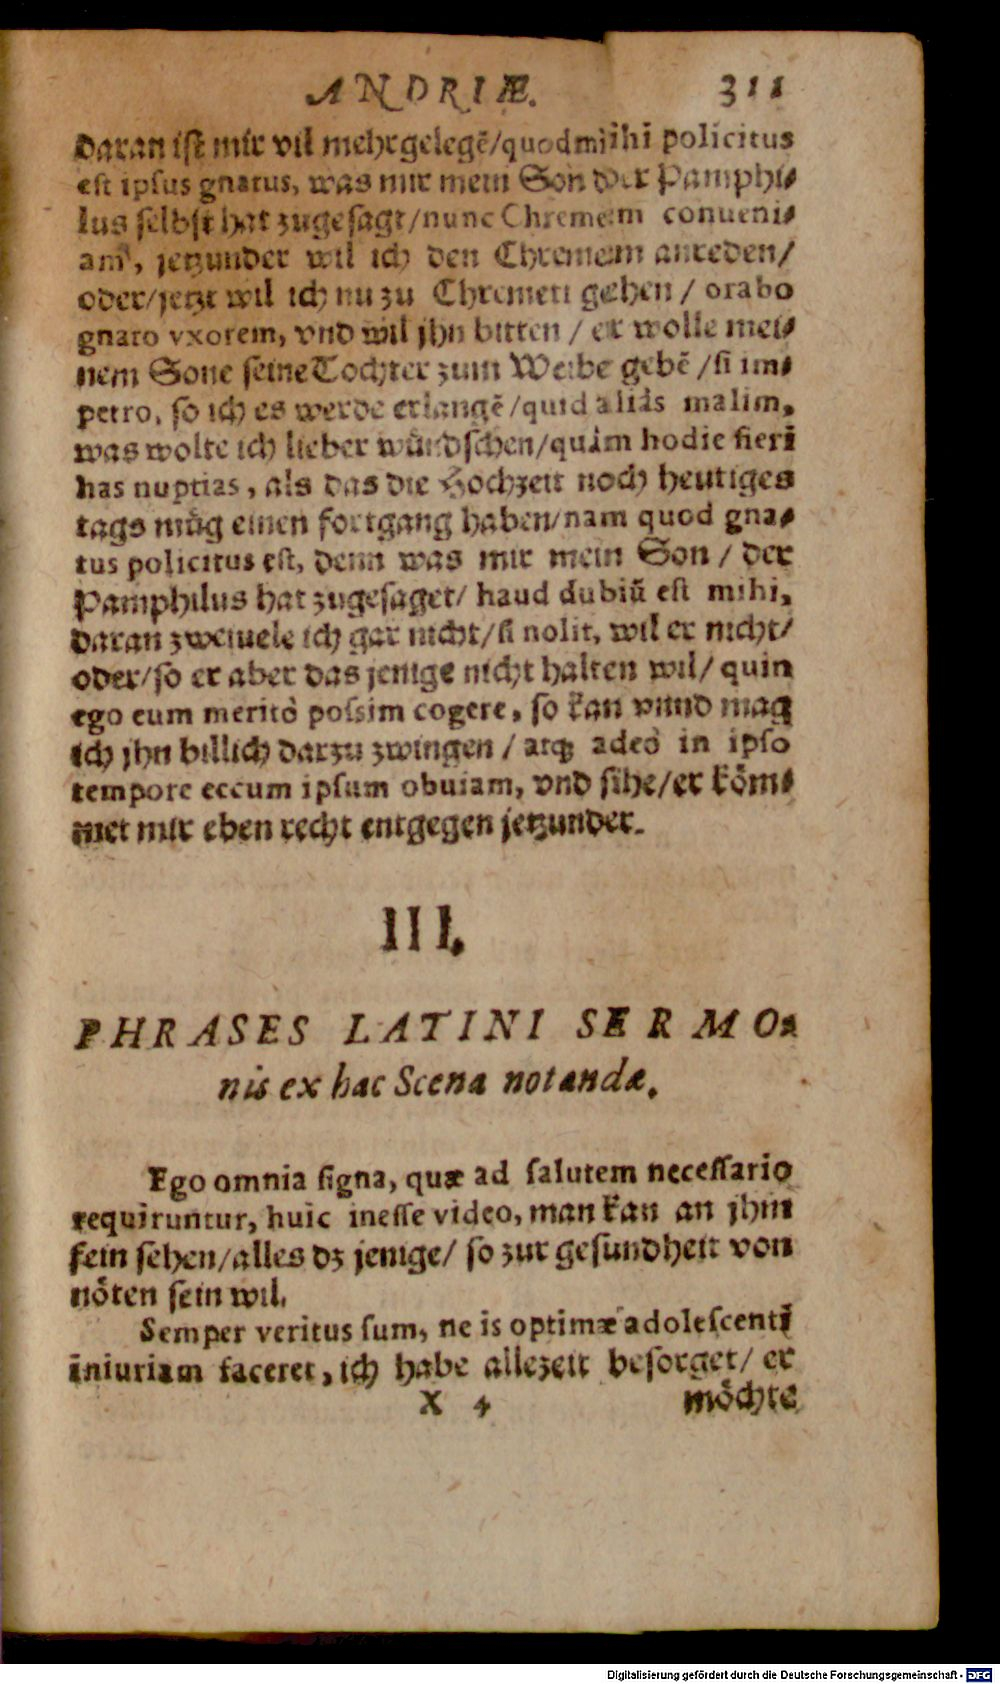 ANDRIÆ. 311
daran ist mir vil mehr gelegē/quod mihi policitus
est ipsus gnatus, was mir mein Son der Pamphi⸗
lus selbst hat zugesagt/nunc Chremem conueni⸗
am, jetzunder wil ich den Chremem anreden/
oder/jetzt wil ich nu zu Chremeti gehen / orabo
gnato vxorem, vnd wil jhn bitten / er wolle mei⸗
nem Sone seine Tochter zum Weibe gebē /si im⸗
petro, so ich es werde erlangē/quid aliàs malim,
was wolte ich lieber wündschen/quàm hodie fieri
has nuptias, als das die Hochzeit noch heutiges
tags müg einen fortgang haben/nam quod gna⸗
tus policitus est, denn was mir mein Son / der
Pamphilus hat zugesaget/ haud dubiū est mihi,
daran zweiuele ich gar nicht/si nolit, wil er nicht/
oder/so er aber das jenige nicht halten wil/ quin
ego eum meritò possim cogere, so kan vnnd mag
ich jhn billich darzu zwingen / atq; adeò in ipso
tempore eccum ipsum obuiam, vnd sihe/er köm⸗
met mir eben recht entgegen jetzunder.
III.
PHRASES LATINI SERMO⸗
nis ex hac Scena notandæ.
Ego omnia signa, quæ ad salutem necessario
requiruntur, huic inesse video, man kan an jhm
fein sehen/alles dz jenige/ so zur gesundheit von
nöten sein wil.
Semper veritus sum, ne is optimæ adolescenti
iniuriam faceret, ich habe allezeit besorget/ er
X 4 möchte
Digitalisierung gefördert durch die Deutsche Forschungsgemeinschaft - DFG